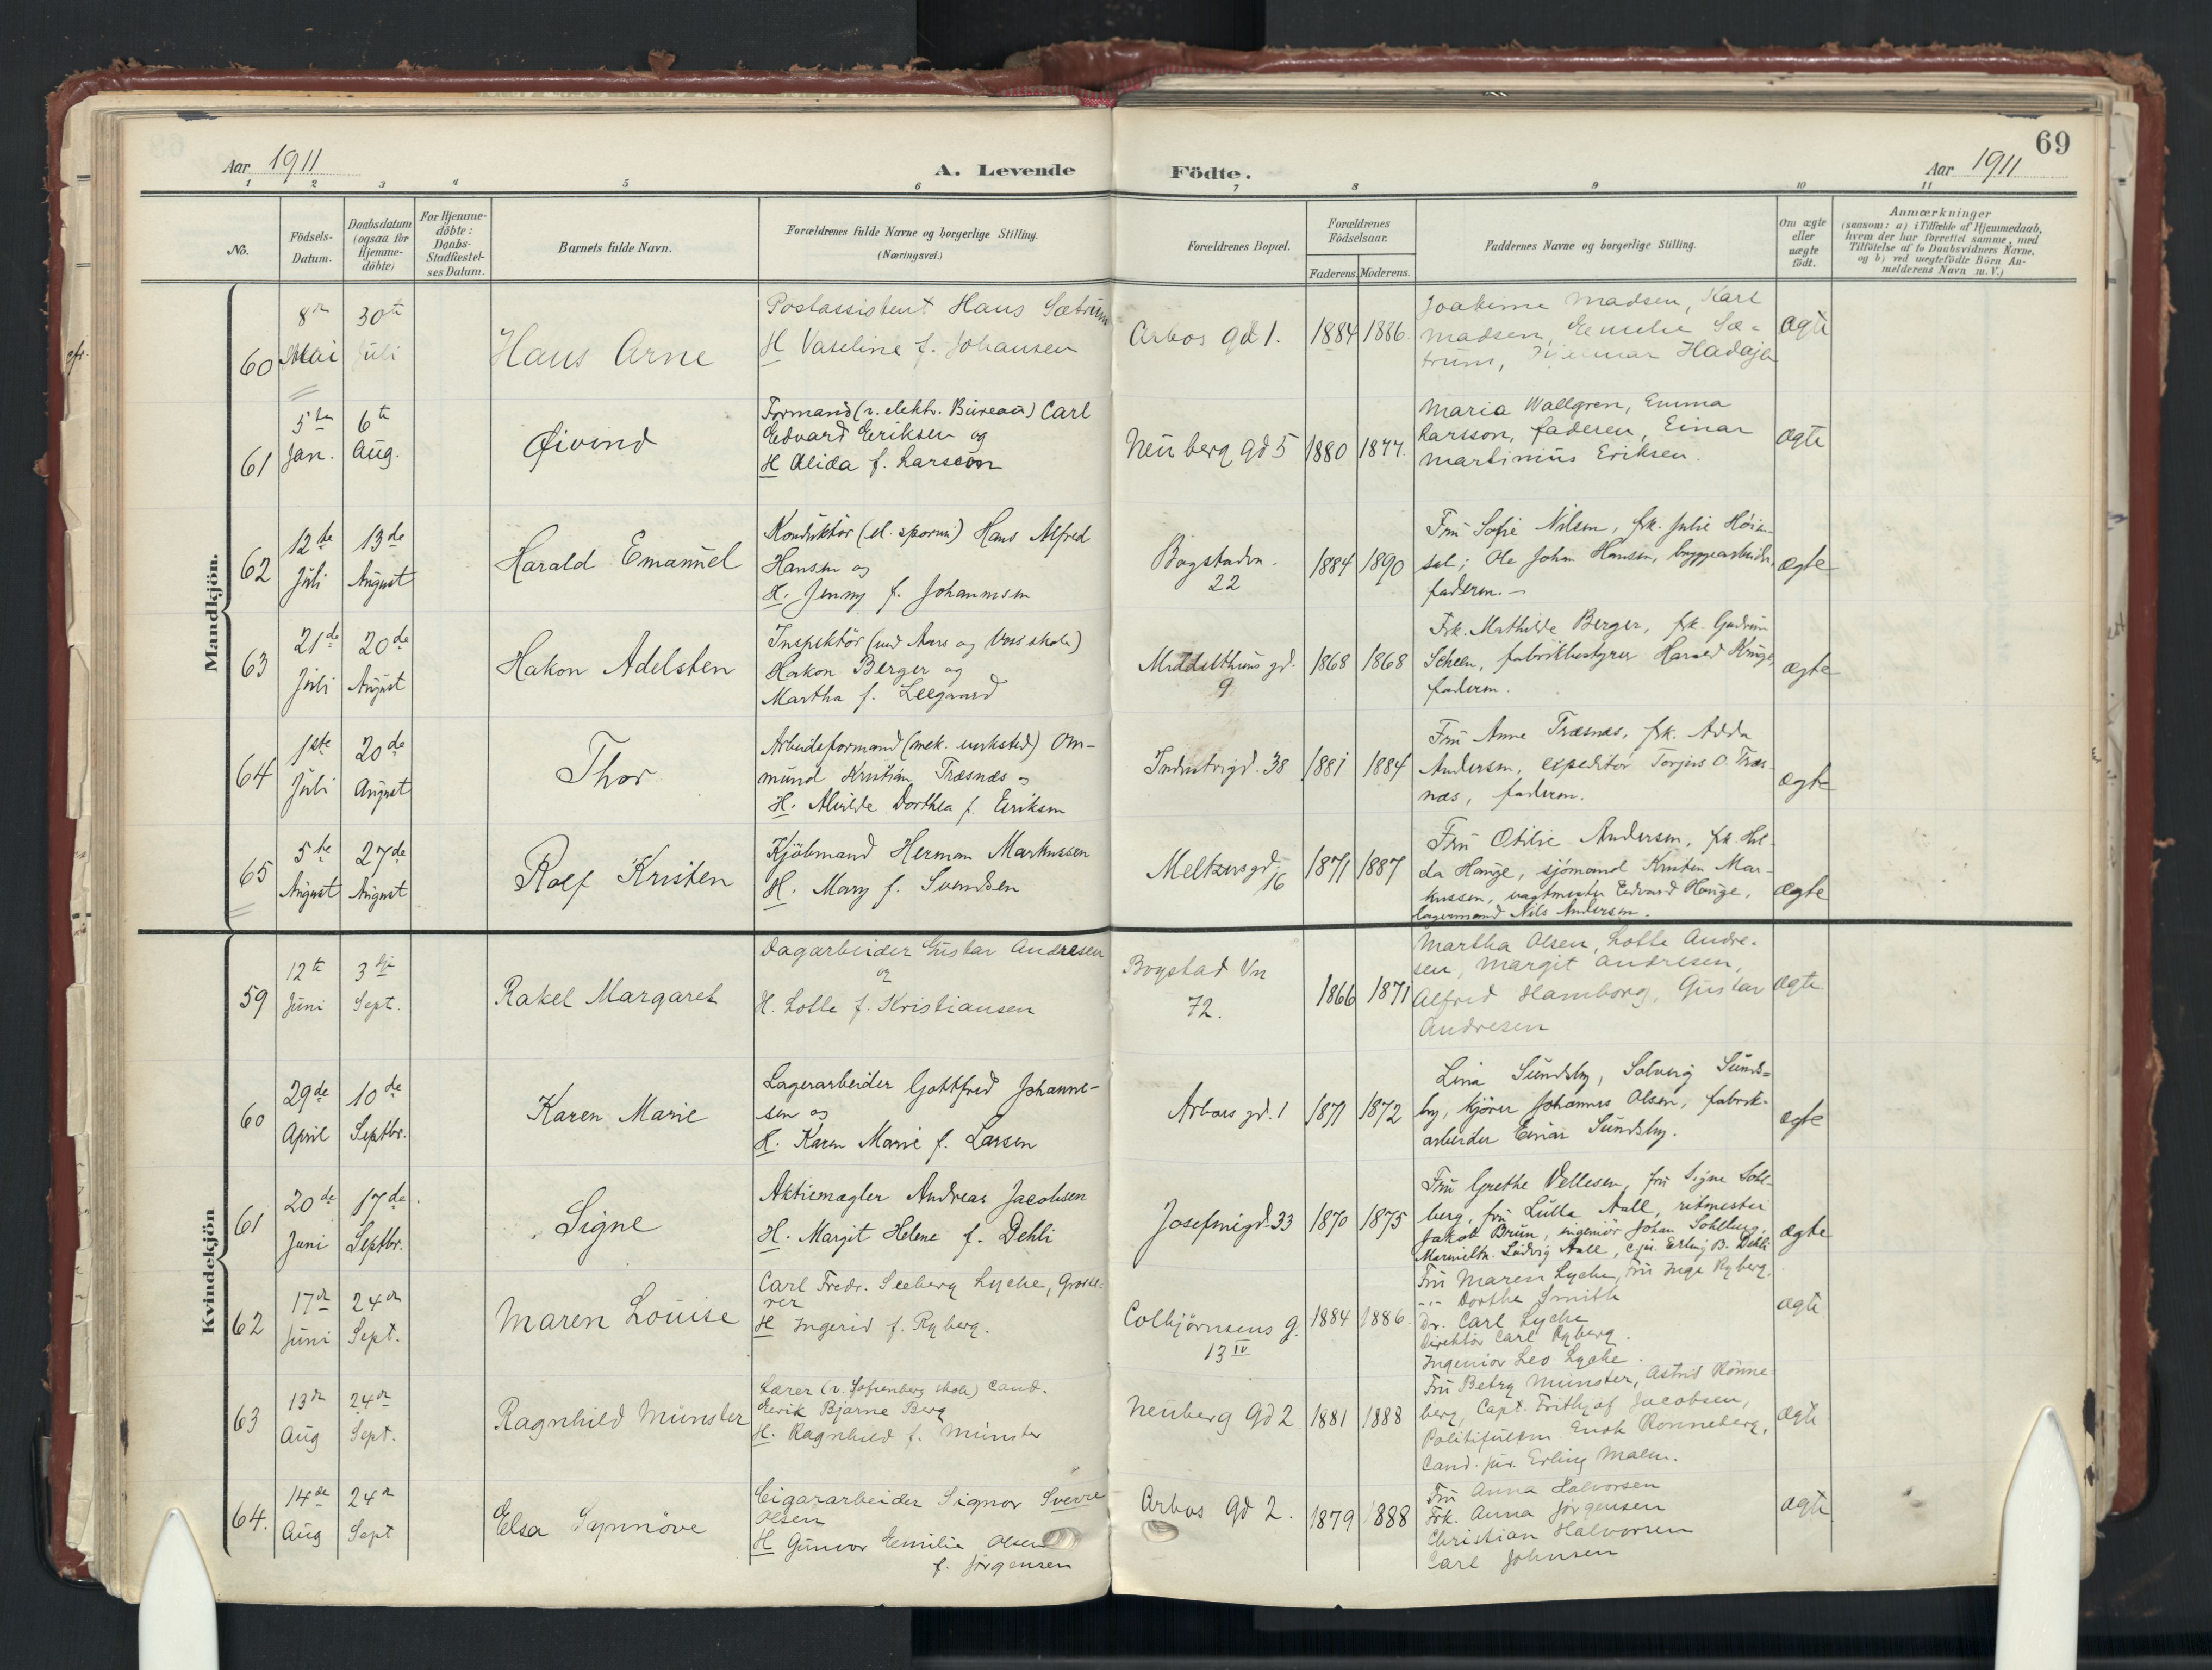 69
Aar 1911
A. Levende Födte.
Aar 1911
1 2 3 4 5 6 7 8 9 10 11
No.
Födsels-
Datum.
Daabsdatum
(ogsaa for
Hjemme-
döbte)
For Hjemme-
döbte:
Daabs-
Stadfæstel-
ses Datum.
Barnets fulde Navn.
Forældrenes fulde Navne og borgerlige Stilling.
(Næringsvei.)
Forældrenes Bopæl.
Forældrenes
Födselsaar.
Faderens. Moderens.
Faddernes Navne og borgerlige Stilling.
Om ægte
eller
uægte
födt.
Anmærkninger
(saasom: a) i Tilfælde af Hjemmedaab,
hvem der har forrettet samme, med
Tilföielse af to Daabsvidners Navne,
og b) ved uægtefödte Börn An-
melderens Navn m. V.)
Mandkjön.
60
8de
Mai
30te
Juli
Hans Arne
Postassistent Hans Sætrum
H Vaseline f. Johansen
Arbos gd 1.
1884 1886.
Joakime Madsen, Karl
Madsen, Emelie Sæ-
trum, Hadeja
ægte
61
5te
Jan.
6te
Aug.
Øivind
Formand (v. elektr. Bureau) Carl
Edvard Eriksen og
H Alida f. Larsson
Neuberg gd 5
1880 1877.
Maria Wallgren, Emma
Larsson, faderen, Einar
Martinius Eriksen.
ægte
62
12te
Juli
13de
August
Harald Emanuel
Konduktör (el. sporvei) Hans Alfred
Hansen og
H. Jenny f. Johannesen
Bogstadvn.
22
1884 1890
Fru Sofie Nilsen, frk. Julie Høie-
sel; Ole Johan Hansen, bryggearbeider,
faderen. —
ægte
63
21de
Juli
20de
August
Hakon Adelsten
Inspektör (ved Aars og Voss skole)
Hakon Berger og
Martha f. Leegaard
Middelthuns gd.
9
1868 1868
Frk. Mathilde Berger, frk. Gudrun
Scheen, fabrikbestyrer Harald Kruge,
faderen.
ægte
64
1ste
Juli
20de
August
Thor
Arbeidsformand (mek. verksted) Om-
mund Kristian Træsnæs og
H. Alvilde Dorthea f. Eriksen
Industrigd. 38
1881 1884
Fru Anne Træsnæs, frk. Adda
Andersen, expeditör Torjus O. Træs-
næs, faderen.
ægte
65
5te
August
27de
August
Rolf Kristen
Kjöbmand Herman Markussen
H. Mary f. Svendsen
Meltzersgd.
16
1871 1887
Fru Otilie Andersen, frk. Hil-
da Hauge, sjömand Kristen Mar-
kussen, vagtmester Edvard Hauge,
lagermand Nils Andersen.
ægte
Kvindekjön
59
12te
Juni
3dje
Sept.
Rakel Margaret
Dagarbeider Gustav Andresen
og
H. Lotte f. Kristiansen
Bogstad Vn
72.
1866 1871
Martha Olsen, Lotte Andre-
sen, Margit Andresen,
Alfred Hamborg, Gustav
Andresen
ægte
60
29de
April
10de
Septbr.
Karen Marie
Lagerarbeider Gottfred Johanne-
sen og
H. Karen Marie f. Larsen
Arbos gd. 1
1871 1872
Lina Sundsby, Solveig Sunds-
by, kjörer Johannes Olsen, fabrik-
arbeider Einar Sundsby.
ægte
61
20de
Juni
17de
Septbr.
Signe
Aktiemægler Andreas Jacobsen
H. Margit Helene f. Dehli
Josefinegd. 33
1870 1875
Fru Grethe Vellesen, fru Signe Sohl-
berg, fru Lulla Aall, ritmester
Jakob Brun, ingeniör Johan Sohlberg,
Marineltn. Ludvig Aall, c. jur. Erling B. Dehli
ægte
62
17de
Juni
24de
Sept.
Maren Louise
Carl Fredr. Seeberg Lyche, Grosse-
rer
H Ingerid f. Ryberg.
Colbjörnsens g.
13 IV
1884 1886.
Fru Maren Lyche, Fru Inga Ryberg,
-"- Dorthe Smith
Dr. Carl Lyche
Direktör Carl Ryberg.
Ingeniör Leo Lyche.
ægte
63
13de
Aug
24de
Sept.
Ragnhild Münster
Lærer (v. Sofienberg skole) Cand.
Eirik Bjarne Berg
H. Ragnhild f. Münster
Neuberg Gd 2
1881 1888
Fru Betzy Münster, Astrid Rönne-
berg, Capt. Frithjof Jacobsen,
Politifuldm. Enok Rönneberg,
Cand. jur. Erling Malm.
ægte
64.
14de
Aug
24de
Sept
Elsa Synnöve
Cigararbeider Signor Sverre
Olsen
H Gunvor Emilie Olsen
f. Jörgensen
Arbos Gd 2.
1879 1888
Fru Anna Halvorsen
Frk. Anna Jörgensen
Christian Halvorsen
Carl Johnsen
ægte